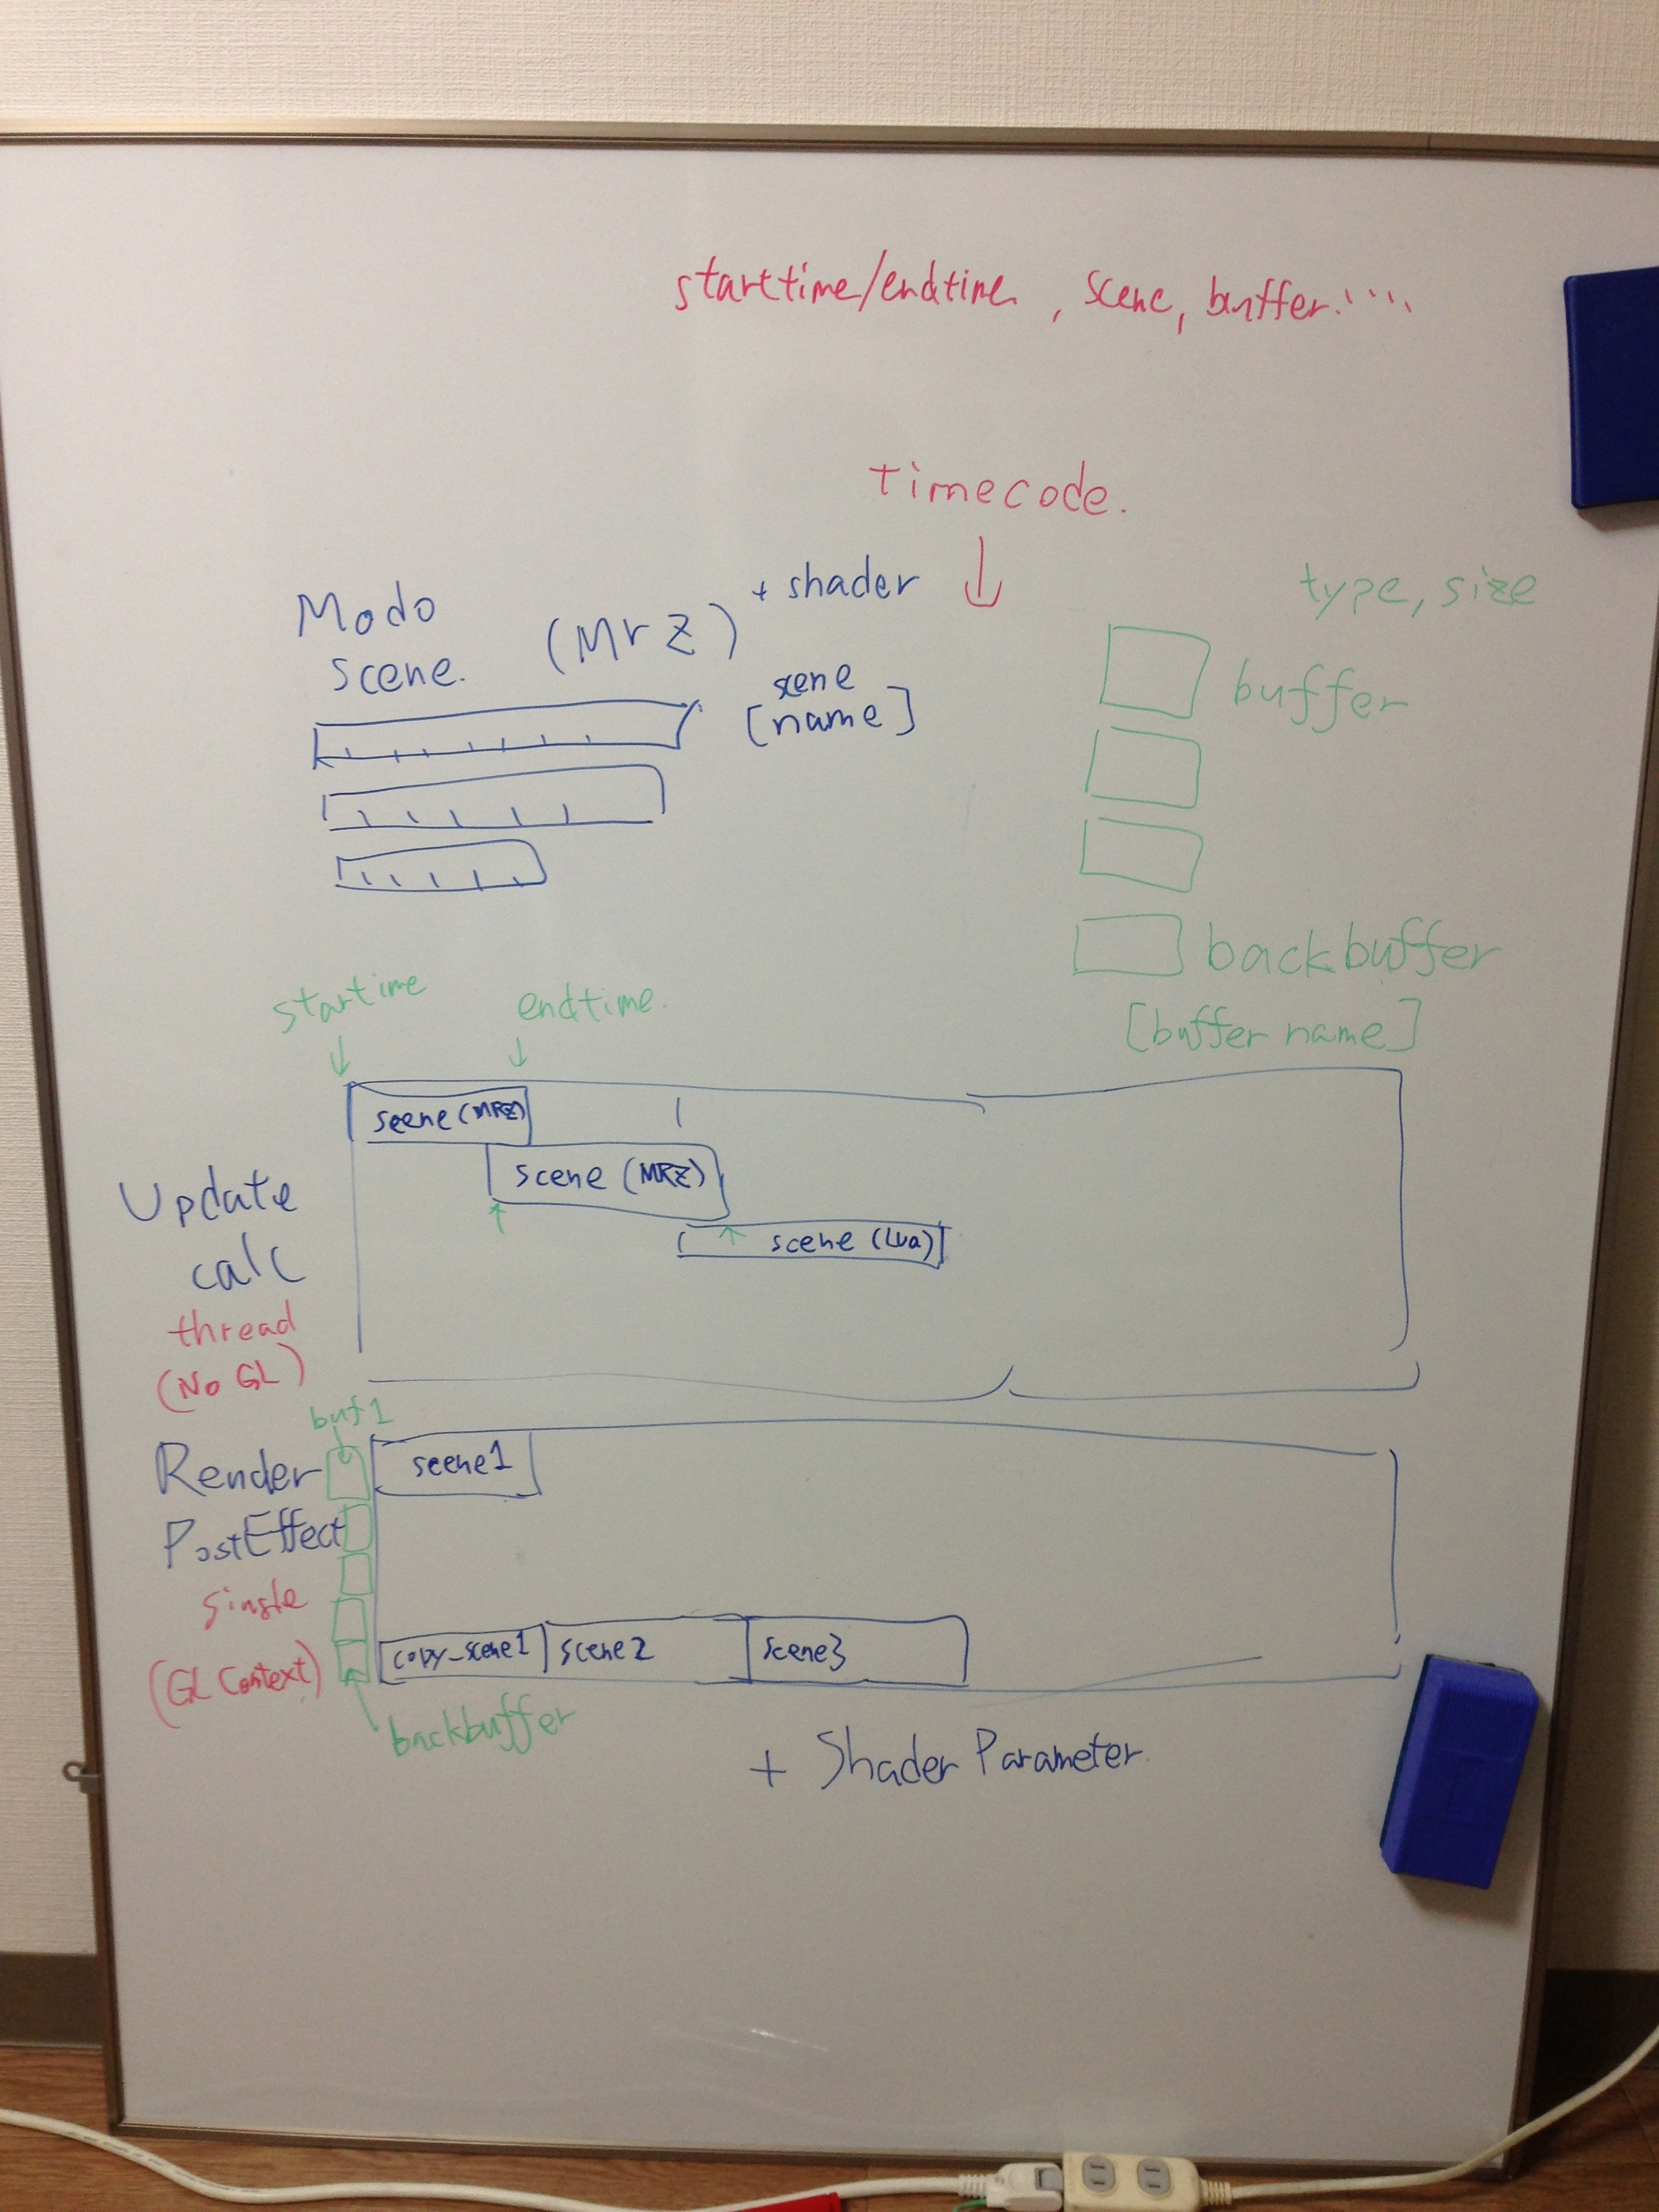 starttime/endtime, scene, buffer.....
timecode.
Modo
scene.
(MrZ)
+ shader
scene
[name]
type, size
buffer
backbuffer
[buffer name]
startime
endtime.
scene (MRZ)
scene (MRZ)
scene (Lua)
Update
calc
thread
(No GL)
buf1
Render
scene1
PostEffect
single
(GL Context)
copy_scene1
scene2
scene3
backbuffer
+ Shader Parameter.